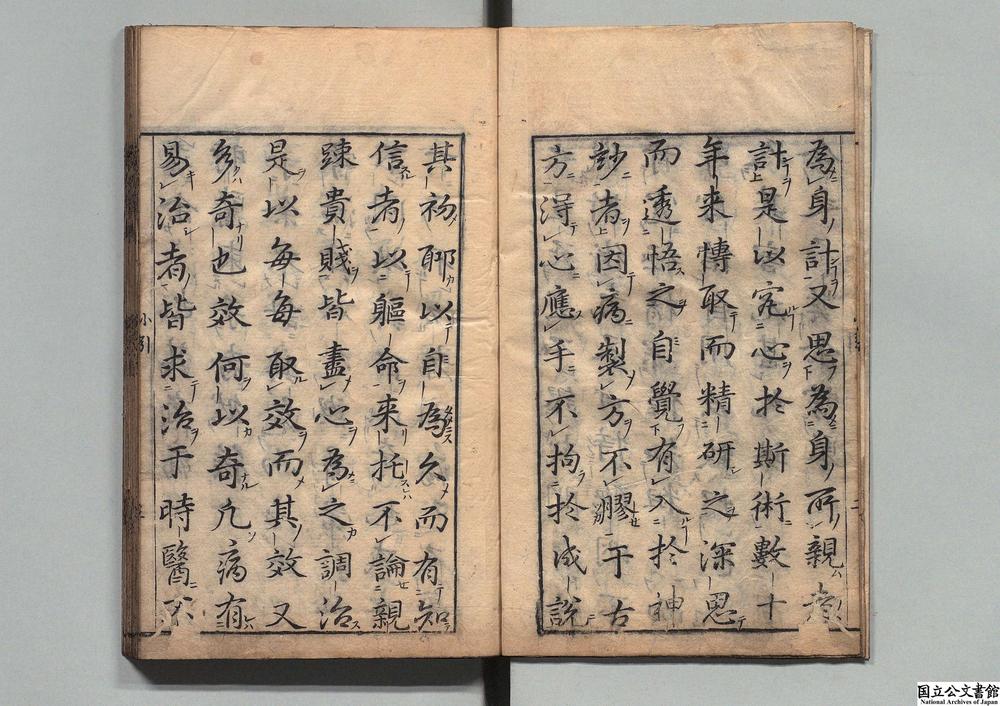 為身計又思為身所親者
計是以究心於斯術數十
年来博取而精研之深思
而透悟之自覺有入於神
妙者因病製方不膠于古
方得心應手不拘於成説
其初聊以自為久而有知
信者以軀命来托不論親
踈貴賤皆盡心為之調治
是以每每取效而其效又
多奇也效何以奇凢病有
易治者皆求治于時醫
小引
国立公文書館
National Archives of Japan